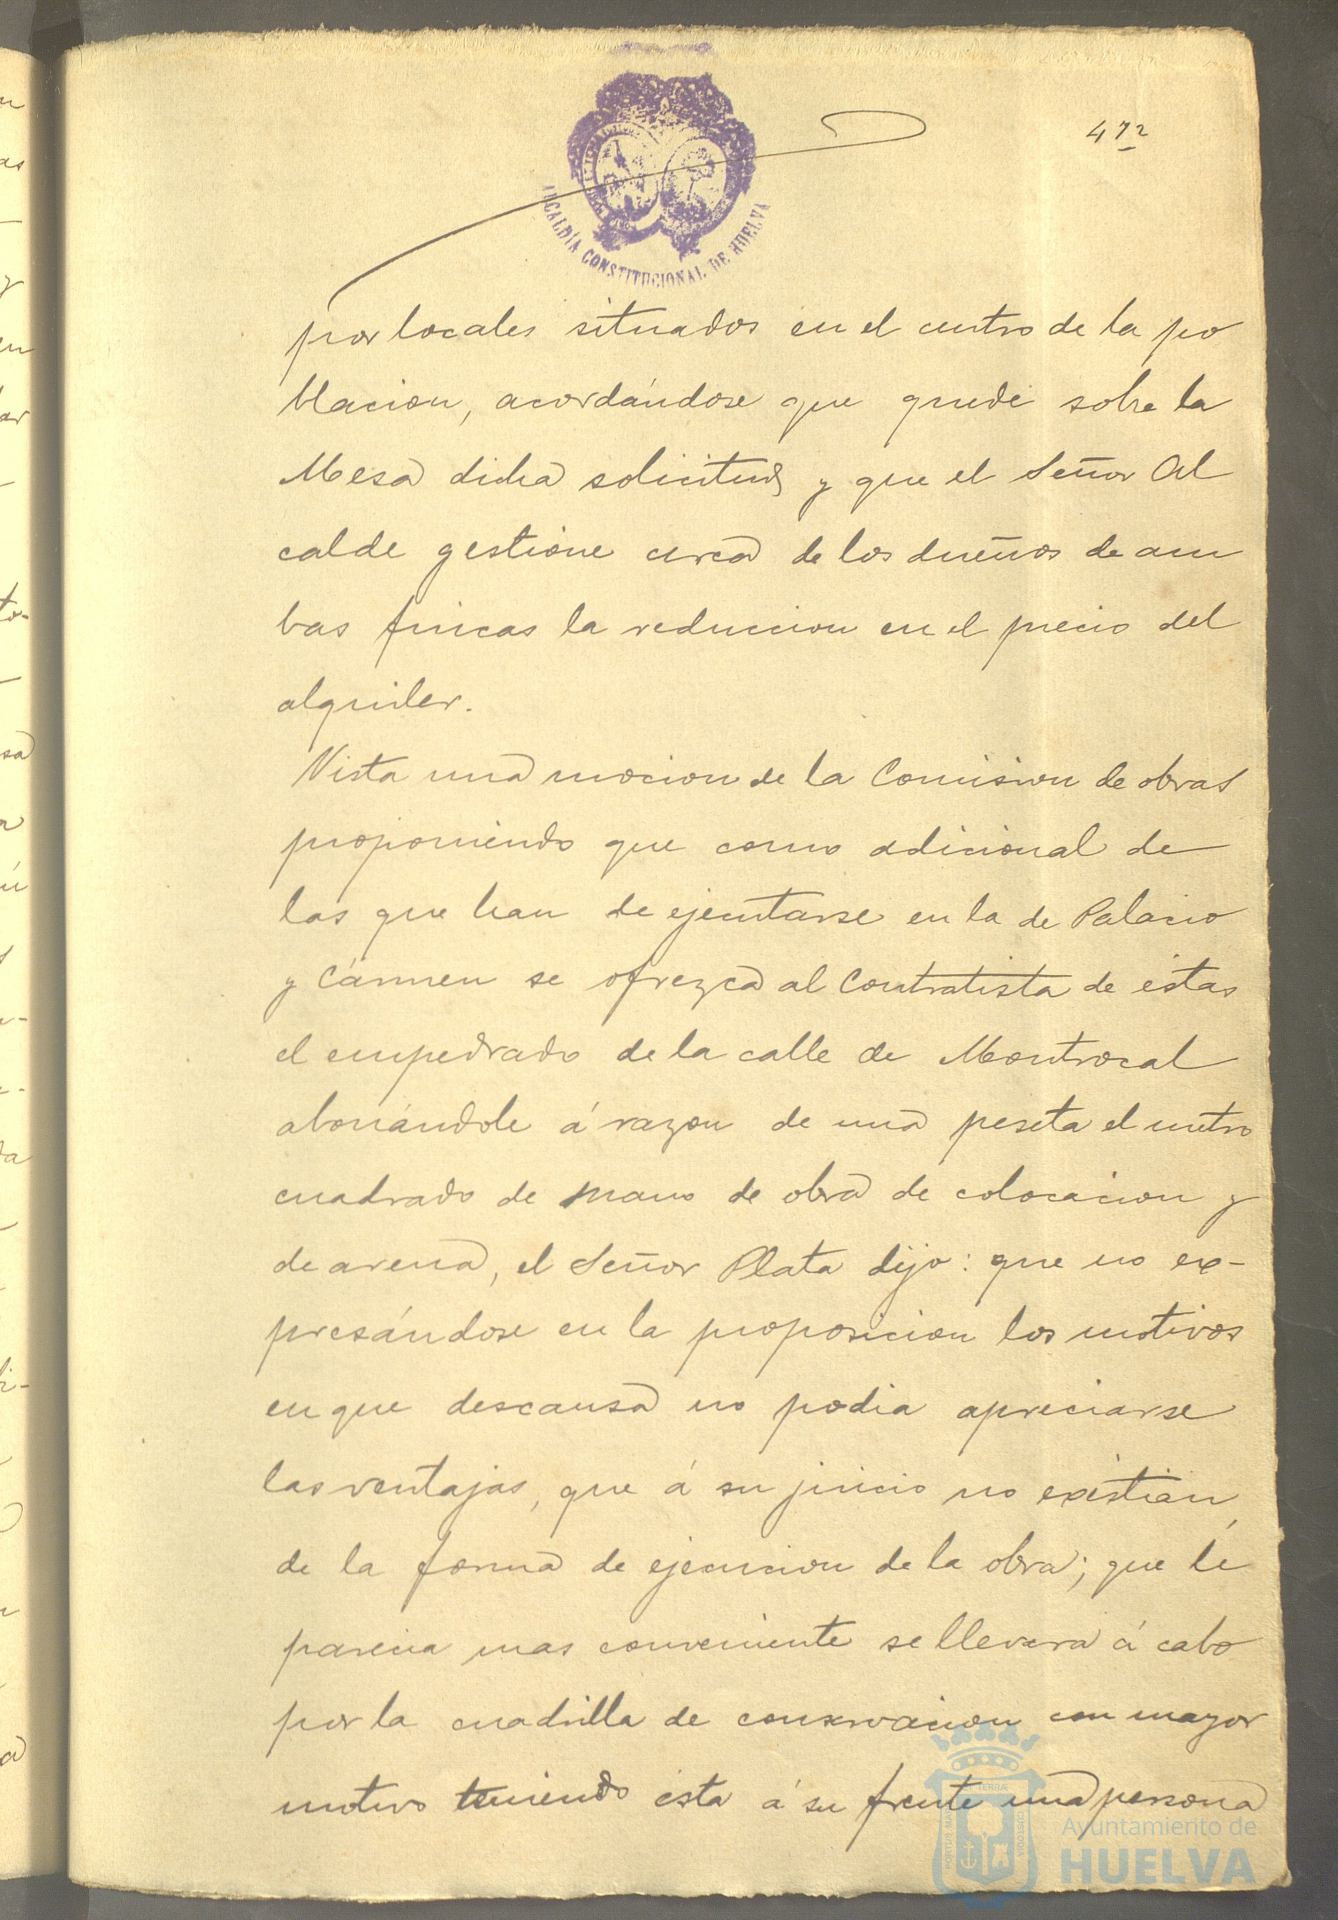 472
ALCALDÍA CONSTITUCIONAL DE HUELVA
por locales situados en el centro de la po
blacion, acordándose que quede sobre la
Mesa dicha solicitud y que el Señor Al
calde gestione cerca de los dueños de am
bas fincas la reduccion en el precio del
alquiler.
Vista una mocion de la Comision de obras
proponiendo que como adicional de
las que han de ejecutarse en la de Palacio
y Cármen se ofrezca al Contratista de éstas
el empedrado de la calle de Montrocal
abonándole á razon de una peseta el metro
cuadrado de mano de obra de colocacion y
de arena, el Señor Plata dijo: que no ex-
presándose en la proposicion los motivos
en que descansa no podia apreciarse
las ventajas, que á su juicio no existian,
de la forma de ejecucion de la obra; que le
parecia mas conveniente se llevara á cabo
por la cuadrilla de conservacion con mayor
motivo teniendo ésta á su frente una persona
Ayuntamiento de
HUELVA